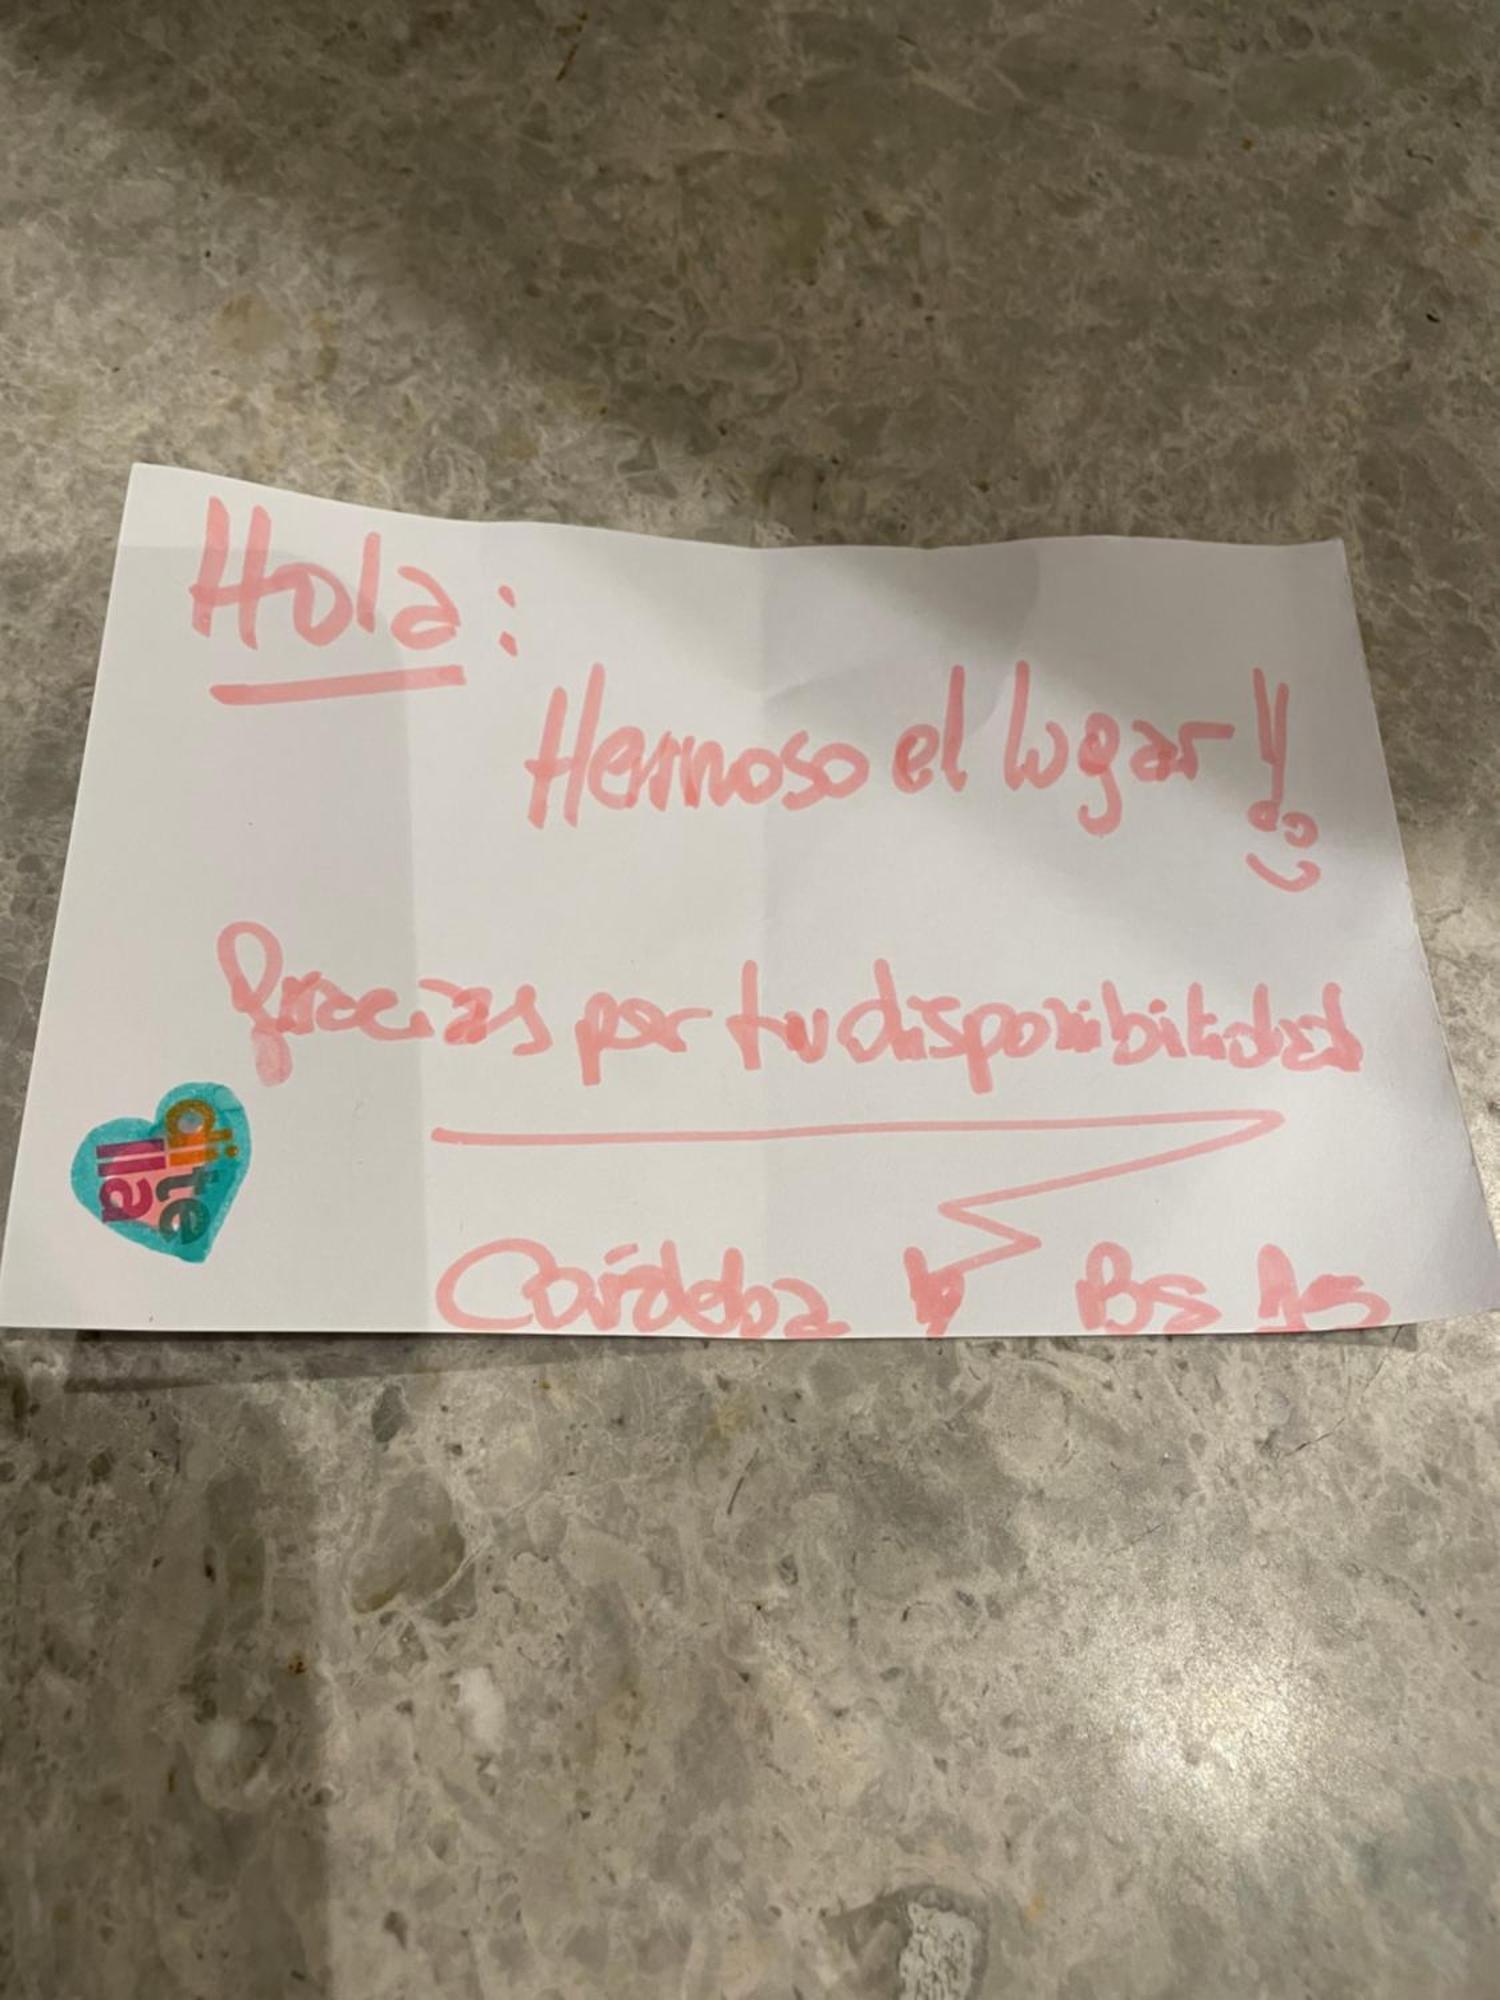 Hola:
Hermoso el lugar!!
Gracias por tu disponibilidad
dite
lla
Córdoba y Bs As